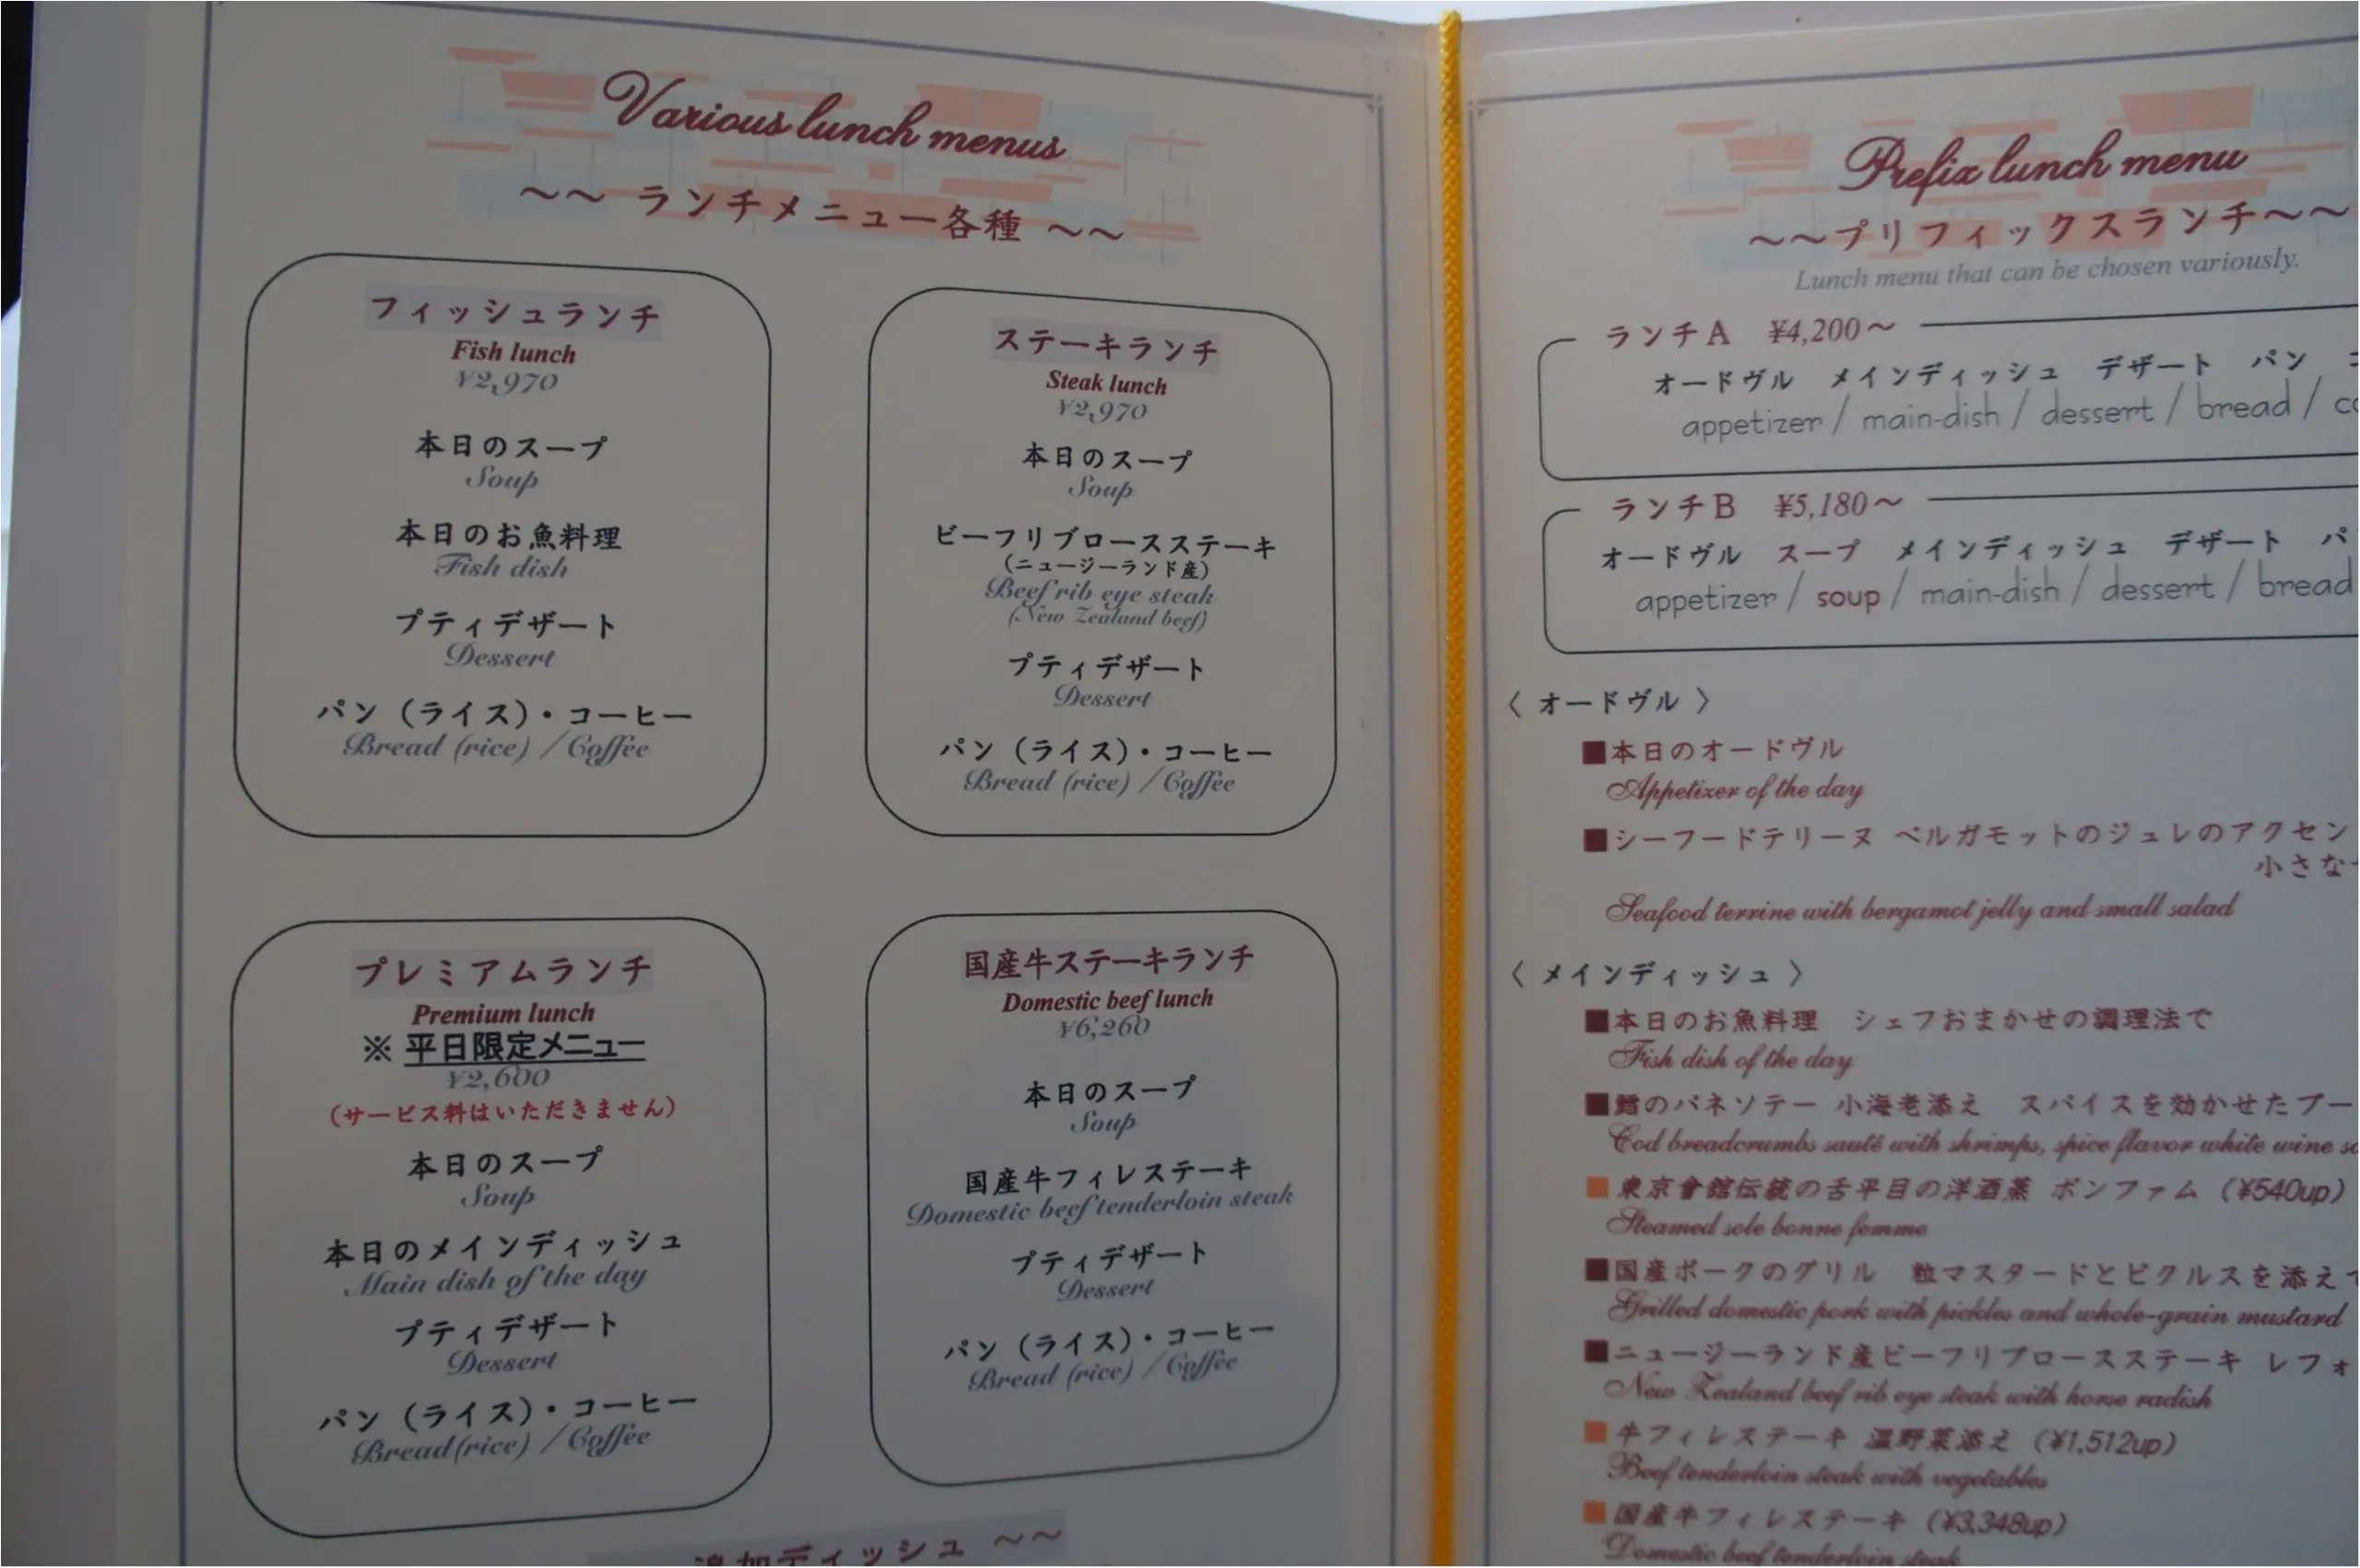 Various lunch menus
～～ ランチメニュー各種 ～～
フィッシュランチ
Fish lunch
¥2,970
本日のスープ
Soup
本日のお魚料理
Fish dish
プティデザート
Dessert
パン（ライス）・コーヒー
Bread (rice) / Coffee
ステーキランチ
Steak lunch
¥2,970
本日のスープ
Soup
ビーフリブロースステーキ
（ニュージーランド産）
Beef rib eye steak
(New Zealand beef)
プティデザート
Dessert
パン（ライス）・コーヒー
Bread (rice) / Coffee
プレミアムランチ
Premium lunch
※ 平日限定メニュー
¥2,600
（サービス料はいただきません）
本日のスープ
Soup
本日のメインディッシュ
Main dish of the day
プティデザート
Dessert
パン（ライス）・コーヒー
Bread(rice) / Coffee
国産牛ステーキランチ
Domestic beef lunch
¥6,260
本日のスープ
Soup
国産牛フィレステーキ
Domestic beef tenderloin steak
プティデザート
Dessert
パン（ライス）・コーヒー
Bread (rice) / Coffee
追加ディッシュ ～～
Prefix lunch menu
～～プリフィックスランチ～～
Lunch menu that can be chosen variously.
ランチA ¥4,200～
オードヴル メインディッシュ デザート パン
appetizer / main-dish / dessert / bread /
ランチB ¥5,180～
オードヴル スープ メインディッシュ デザート パ
appetizer / soup / main-dish / dessert / bread
〈 オードヴル 〉
■本日のオードヴル
Appetizer of the day
■シーフードテリーヌ ベルガモットのジュレのアクセン
小さな
Seafood terrine with bergamot jelly and small salad
〈 メインディッシュ 〉
■本日のお魚料理 シェフおまかせの調理法で
Fish dish of the day
■鱈のパネソテー 小海老添え スパイスを効かせたブー
Cod breadcrumbs sauté with shrimps, spice flavor white wine
■東京會舘伝統の舌平目の洋酒蒸 ボンファム（¥540up）
Steamed sole bonne femme
■国産ポークのグリル 粒マスタードとピクルスを添えて
Grilled domestic pork with pickles and whole-grain mustard
■ニュージーランド産ビーフリブロースステーキ レフォ
New Zealand beef rib eye steak with horse radish
■牛フィレステーキ 温野菜添え（¥1,512up）
Beef tenderloin steak with vegetables
■国産牛フィレステーキ（¥3,348up）
Domestic beef tenderloin steak